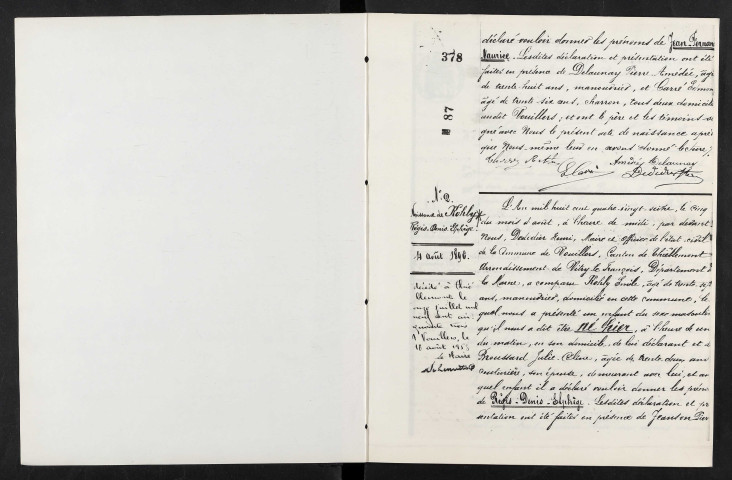 378
87
déclaré vouloir donner les prénoms de Jean Fernan
Maurice. Lesdites déclaration et présentation ont été
faites en présence de Delaunay Pierre Amédée, âgé
de trente huit ans, manouvrier, et Carré
âgé de trente six ans, charron, tous deux domicilié
audit Vouillers; et ont le père et les témoins si
gné avec Nous le présent acte de naissance après
que Nous même leur en avons donné lecture.
Amédée Delaunay
E. Carré
Dedidier
Naissance de Kohly
Régis-Denis-Elphège
4 août 1896.
décédé à
le
onze juillet mil
neuf cent cin
quante trois
Vouillers, le
août 1953
Le Maire
L'An mil huit cent quatre-vingt-seize, le cinq
du mois d'août, à l'heure de midi, par devant
Nous, Dedidier Henri, Maire et officier de l'état civil
de la Commune de Vouillers, Canton de Thiéblemont
Arrondissement de Vitry le François, Département de
la Marne, a comparu Kohly Emile, âgé de trente sept
ans, manouvrier, domicilié en cette commune, le
quel nous a présenté un enfant du sexe masculin
qu'il nous a dit être né hier, à l'heure de un
du matin, en son domicile, de lui déclarant et de
Broussard Julie Céline, âgée de trente deux ans
couturière, son épouse, demeurant avec lui, et au
quel enfant il a déclaré vouloir donner les prénoms
de Régis-Denis-Elphège. Lesdites déclaration et pré
sentation ont été faites en présence de Jeanson Pier